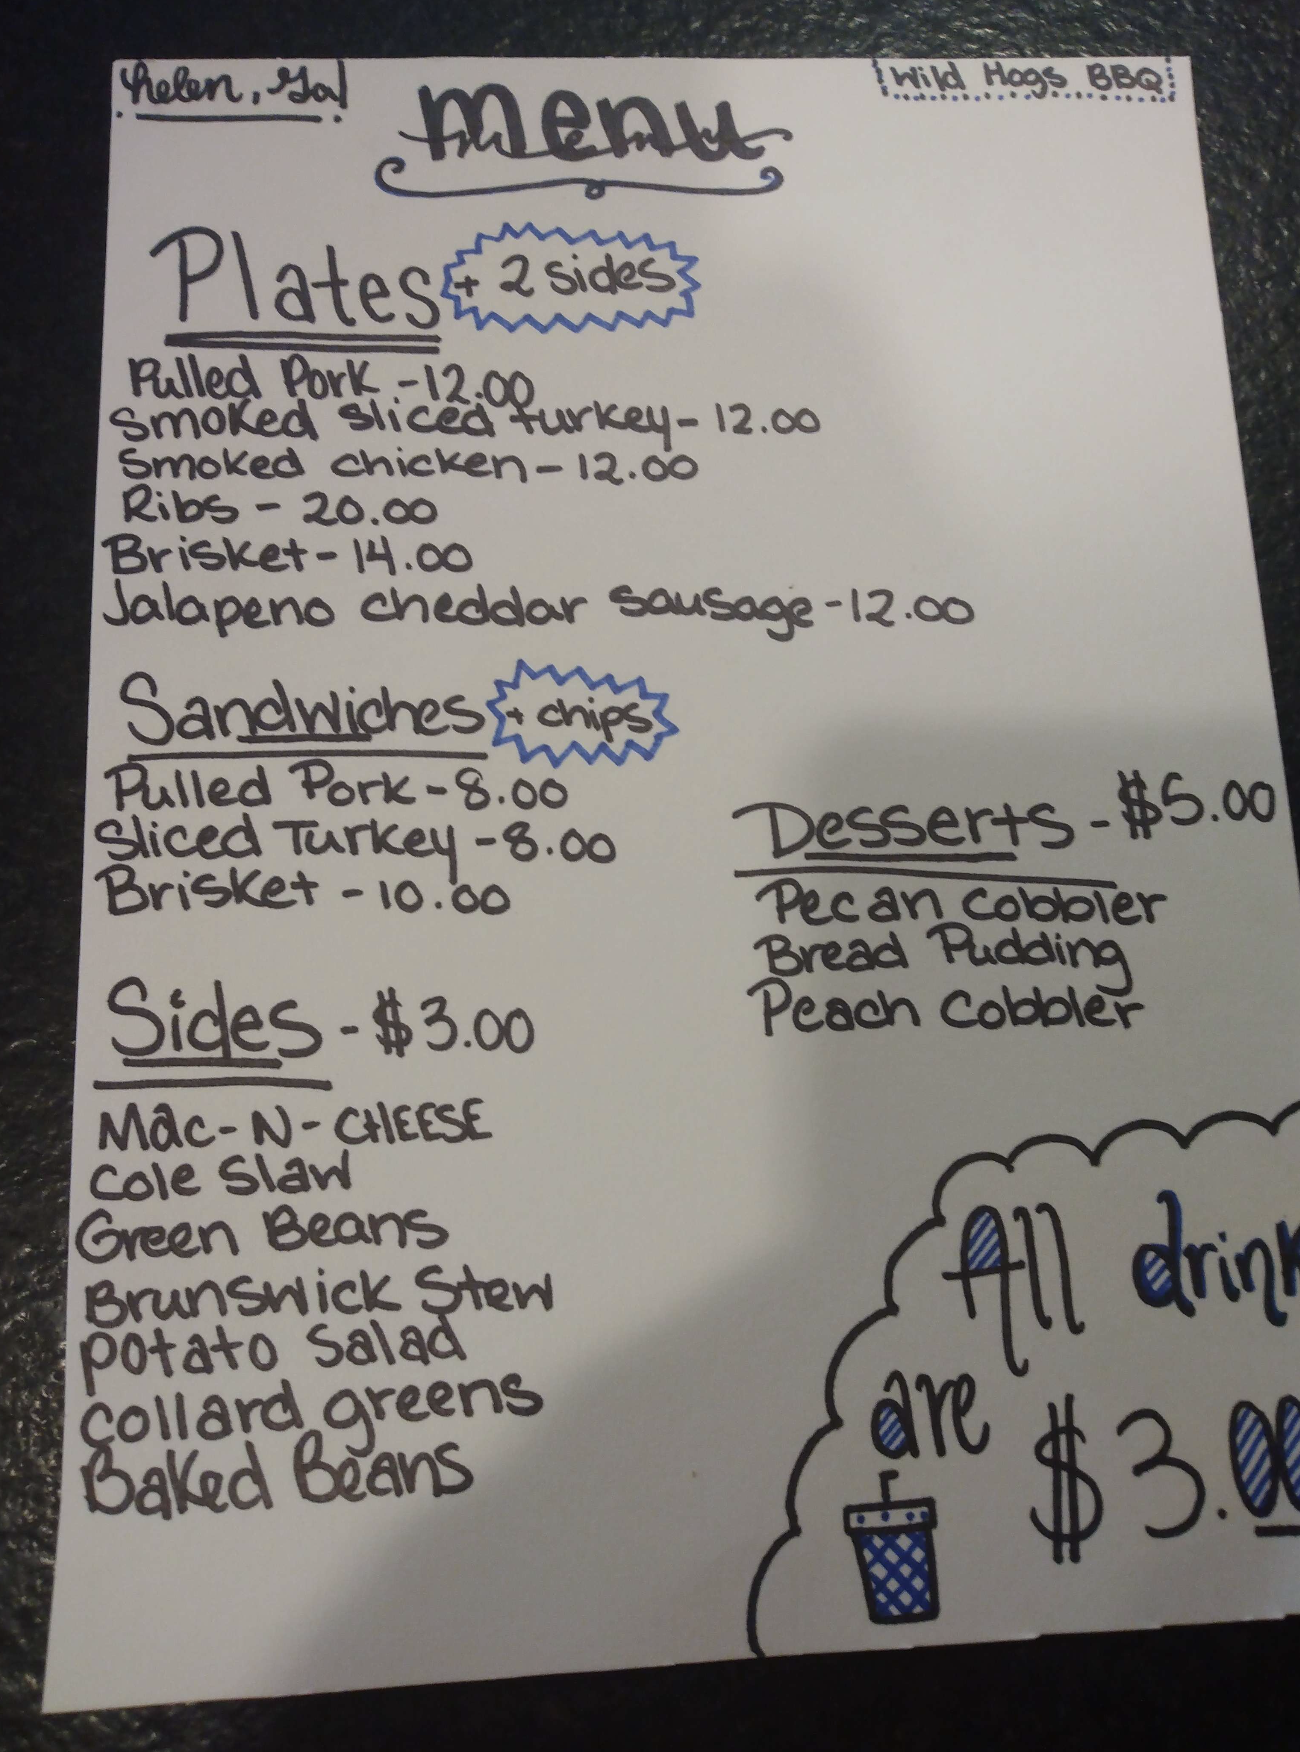 Helen, Ga
Wild Hogs BBQ
menu
Plates + 2 sides
Pulled Pork - 12.00
Smoked sliced turkey - 12.00
Smoked chicken - 12.00
Ribs - 20.00
Brisket - 14.00
Jalapeno cheddar sausage - 12.00
Sandwiches + chips
Pulled Pork - 8.00
Sliced Turkey - 8.00
Brisket - 10.00
Desserts - $5.00
Pecan cobbler
Bread Pudding
Peach cobbler
Sides - $3.00
Mac-N-CHEESE
Cole Slaw
Green Beans
Brunswick Stew
Potato Salad
collard greens
Baked Beans
All drink
are $3.00